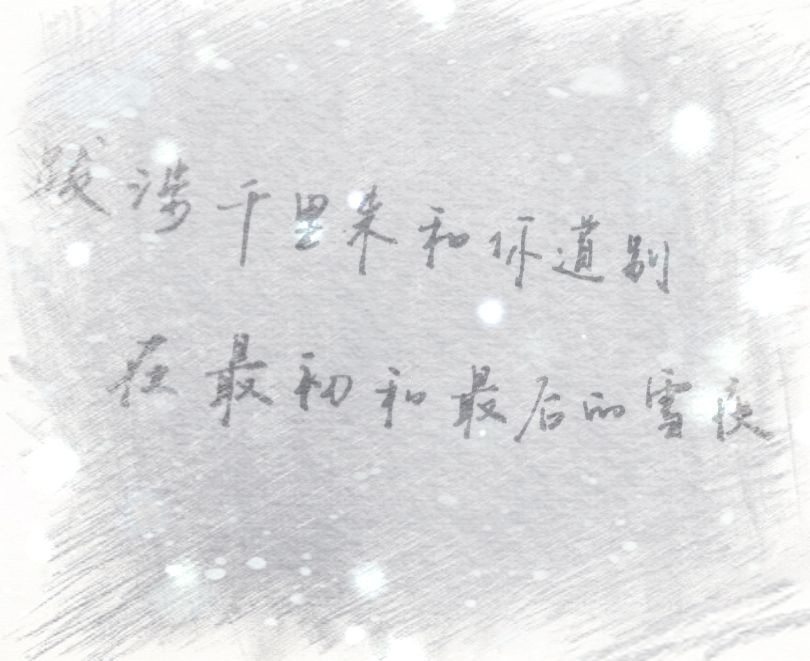 跋涉千里来和你道别
在最初和最后的雪夜